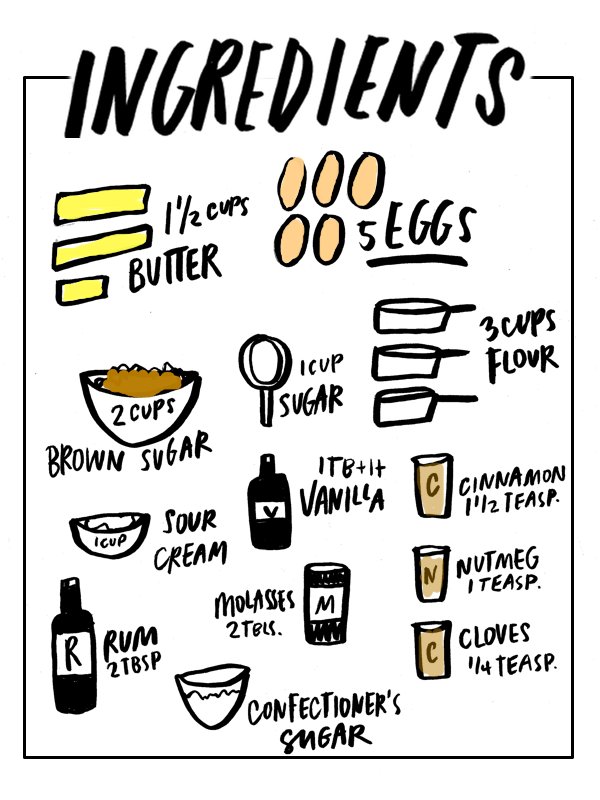 INGREDIENTS
1 1/2 CUPS
BUTTER
5 EGGS
3 CUPS
FLOUR
2 CUPS
BROWN SUGAR
1 CUP
SUGAR
1 CUP
SOUR
CREAM
V
1 TB + 1t
VANILLA
C
CINNAMON
1 1/2 TEASP.
N
NUTMEG
1 TEASP.
MOLASSES
2 TBLS.
M
R
RUM
2 TBSP
C
CLOVES
1/4 TEASP.
CONFECTIONER'S
SUGAR